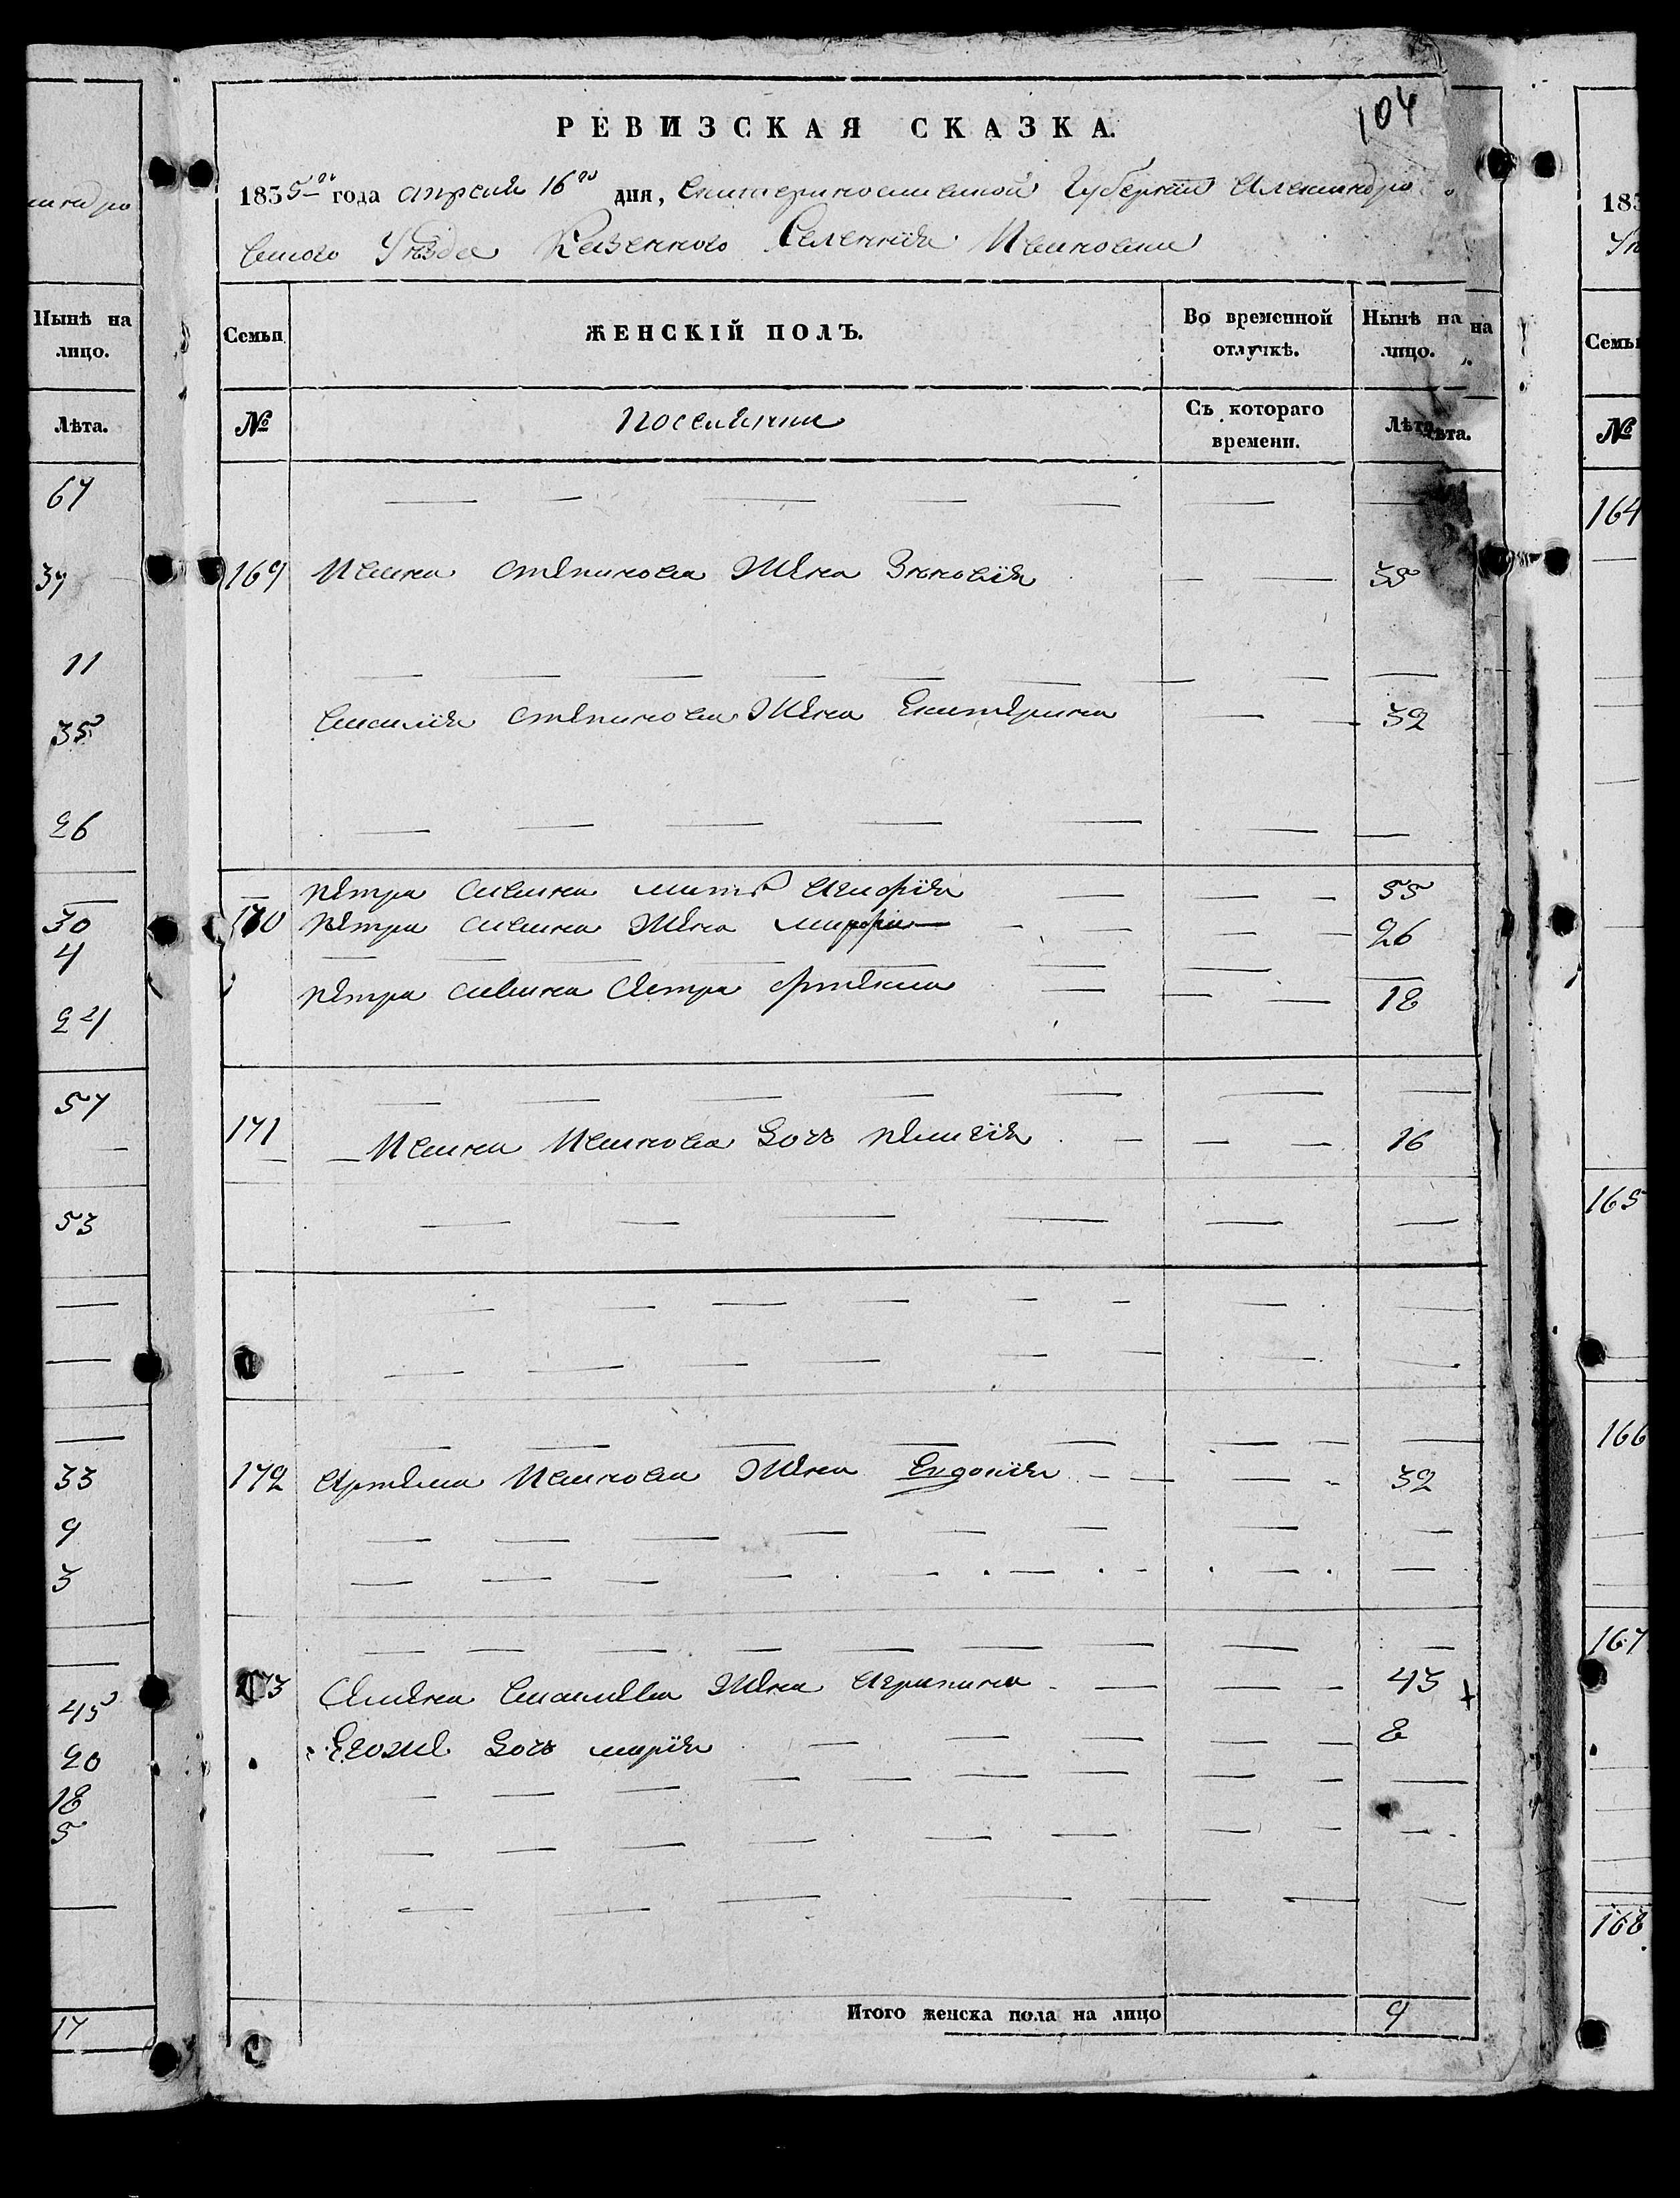 104
РЕВИЗСКАЯ СКАЗКА.
1835го года апреля 16го дня, Екатеринославской Губернии Александро
вского Уезда Казенного Селения Ивановки
Семьи ЖЕНСКІЙ ПОЛЪ. Во временной отлучкѣ. Нынѣ на лицо.
№ Поселяни Съ котораго времени. Лѣта.
169 Ивана Степанова Жена Зиновія 35
Василія Степанова Жена Екатерина 32
Петра Савина мать Агафія 55
170 Петра Савина Жена Марфа 26
Петра Савина Сестра 18
171 Ивана Иванова Дочь Пелагія 16
172 Артема Иванова Жена Евдокія 32
173 Семена Васильева Жена Агрипина 43
Егоже Дочь Марія 8
Итого женска пола на лицо 9
Нынѣ на лицо.
Лѣта.
67
37
11
35
26
30
4
24
57
53
33
9
3
45
20
18
5
17
183
Семьи
№
164
165
166
167
168